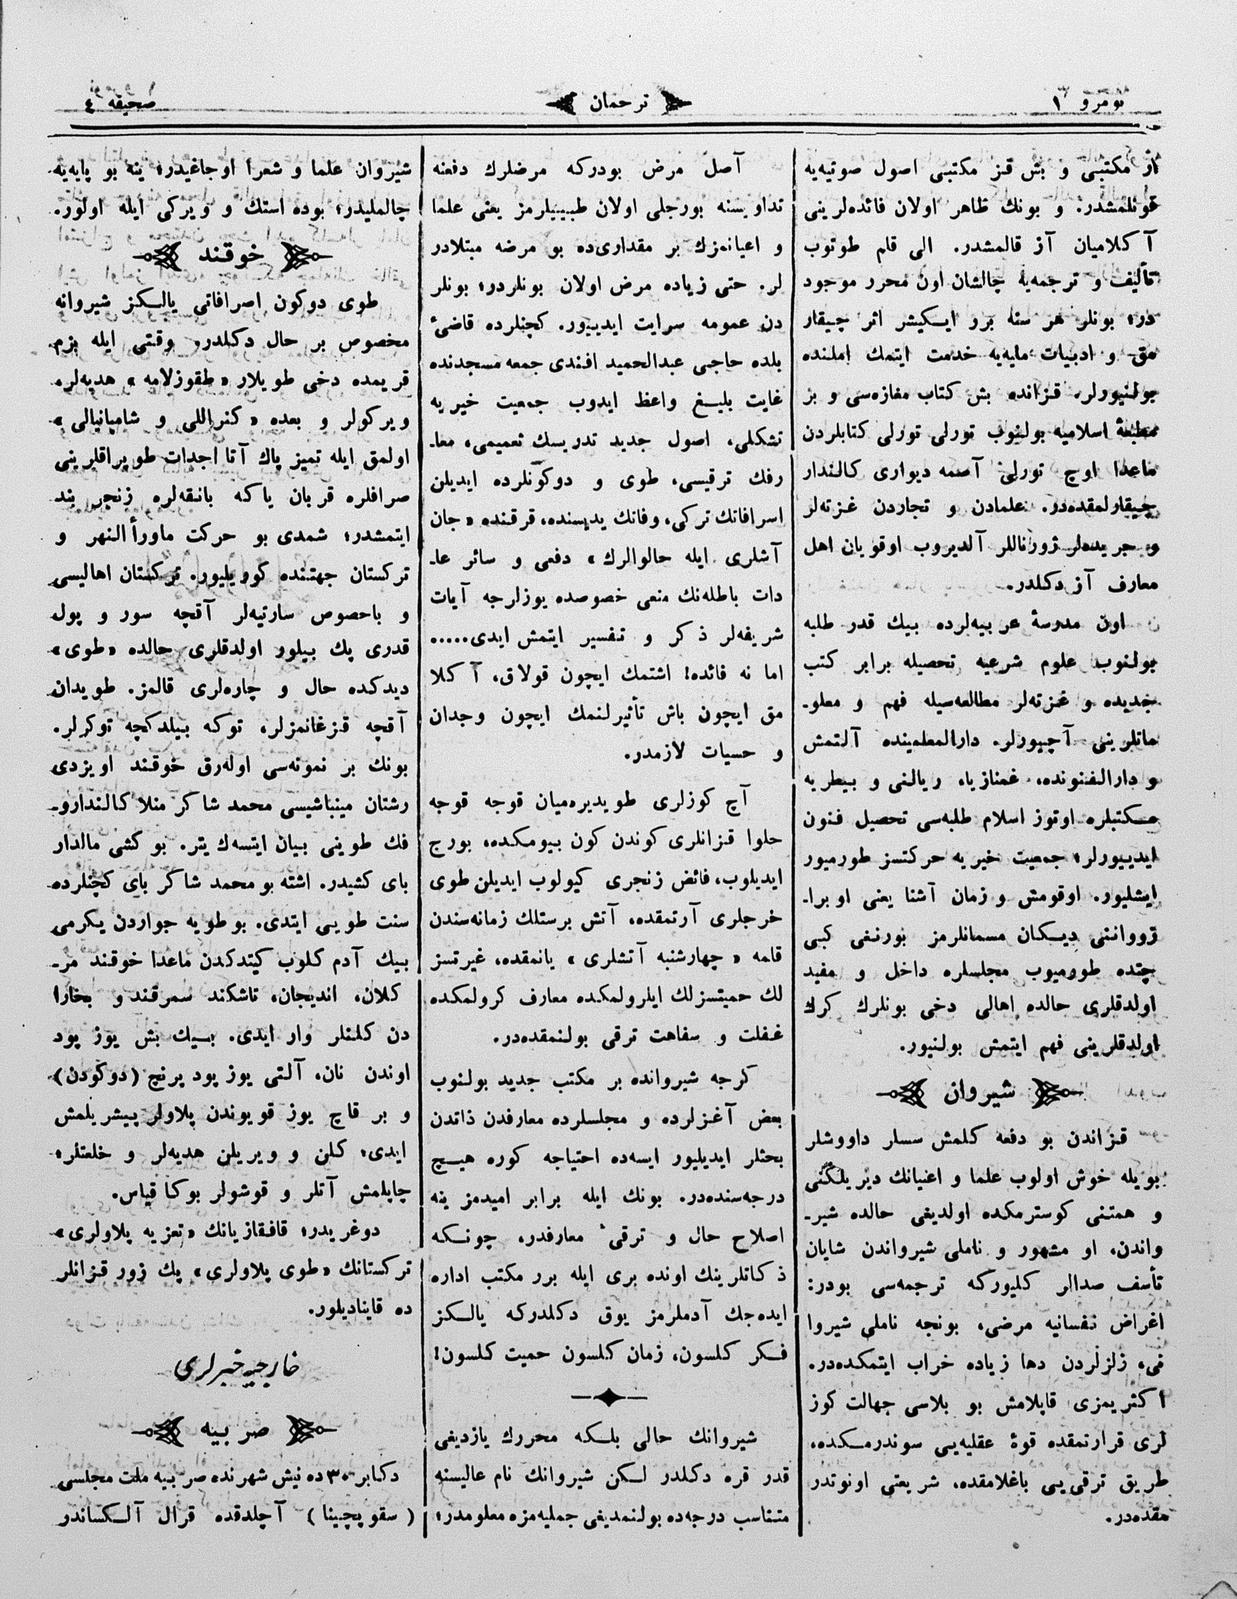 نومرو ١
ترجمان
صحیفه ٤
از مكتبی و بش قز مكتبی اصول صوتیه‌یه
قونلمشدر. و بونك ظاهر اولان فائده‌لرینی
آكلامیان آز قالمشدر. الی قلم طوتوب
تألیف و ترجمه‌یه چالشان اون محرر موجود
در؛ بونلر هر سنه برو ایكیشر اثر چیقار
مق و ادبیات ملیه‌یه خدمت ایتمك املنده
بولنیورلر. قزانده بش كتاب مغازه‌سی و بر
مطبعهٔ اسلامیه بولنوب تورلی تورلی كتابلردن
ماعدا اوچ تورلی آصمه دیواری كالندار
چیقارلمقده‌در. علمادن و تجاردن غزته‌لر
و جریده‌لر ژورناللر آلدیروب اوقویان اهل
معارف آز دكلدر.
اون مدرسهٔ عربیه‌لرده بیك قدر طلبه
بولنوب علوم شرعیه تحصیله برابر كتب
جدیده و غزته‌لر مطالعه‌سیله فهم و معلو-
ماتلرینی آچیورلر. دارالمعلمینده آلتمش
و دارالفنونده، غمنازیا، ریالنی و بیطریه
مكتبلره اوتوز اسلام طلبه‌سی تحصیل فنون
ایدییورلر؛ جمعیت خیریه حركتسز طورمیور
ایشلیور. اوقومش و زمان آشنا یعنی اوبرا-
زووانتی دیكان مسمانلرمز بورنغی كبی
چتده طورمیوب مجلسلره داخل و مفید
اولدقلری حالده اهالی دخی بونلرك كرك
اولدقلرینی فهم ایتمش بولنیور.
شیروان
قزاندن بو دفعه كلمش سسلر داووشلر
بویله خوش اولوب علما و اغنیانك دیریلكنی
و همتنی كوسترمكده اولدیغی حالده شیر-
واندن، او مشهور و ناملی شیرواندن شایان
تأسف صدالر كلیوركه ترجمه‌سی بودر:
اغراض نفسانیه مرضی، بونجه ناملی شیروا
نی، زلزلردن دها زیاده خراب ایتمكده‌در.
اكثریمزی قاپلامش بو بلاسی جهالت كوز
لری قرارتمقده قوهٔ عقلیه‌یی سوندرمكده،
طریق ترقی‌یی باغلامقده، شریعتی اونوتدر
مقده‌در.
آصل مرض بودركه مرضلرك دفعنه
تداویسنه بورجلی اولان طبیبلرمز یعنی علما
و اعیانمزك بر مقداری‌ده بو مرضه مبتلادر
لر. حتی زیاده مرض اولان بونلردر؛ بونلر
دن عمومه سرایت ایدییور. كچنلرده قاضیٔ
بلده حاجی عبدالحمید افندی جمعه مسجدنده
غایت بلیغ واعظ ایدوب جمعیت خیریه
تشكلی، اصول جدید تدریسك تعمیمی، معا-
رفك ترقیسی، طوی و دوكونلرده ایدیلن
اسرافاتك تركی، وفاتك یدیسنده، قرقنده «جان
آشلری ایله حالوالرك» دفعی و سائر عا-
دات باطله‌نك منعی خصوصده یوزلرجه آیات
شریفه‌لر ذكر و تفسیر ایتمش ایدی.....
اما نه فائده! اشتمك ایچون قولاق، آكلا
مق ایچون باش تأثیرلنمك ایچون وجدان
و حسیات لازمدر.
آچ كوزلری طویدیره‌میان قوجه قوجه
حلوا قزانلری كوندن كون بیومكده، بورج
ایدیلوب، فائض زنجری كیولوب ایدیلن طوی
خرجلری آرتمقده، آتش برستلك زمانه‌سندن
قامه «چهارشنبه آتشلری» یانمقده، غیرتسز
لك حمیتسزلك ایلرولمكده معارف كرولمكده
غفلت و سفاهت ترقی بولنمقده‌در.
كرجه شیروانده بر مكتب جدید بولنوب
بعض آغزلرده و مجلسلرده معارفدن ذاتدن
بحثلر ایدیلیور ایسه‌ده احتیاجه كوره هیچ
درجه‌سنده‌در. بونك ایله برابر امیدمز ینه
اصلاح حال و ترقیٔ معارفدر، چونكه
ذكاتلرینك اونده بری ایله برر مكتب اداره
ایده‌جك آدملرمز یوق دكلدركه یالكز
فكر كلسون، زمان كلسون حمیت كلسون!
شیروانك حالی بلكه محررك یازدیغی
قدر قره دكلدر لكن شیروانك نام عالیسنه
متناسب درجه‌ده بولنمدیغی جملیه‌مزه معلومدر؛
شیروان علما و شعرا اوجاغیدر؛ ینه بو پایه‌یه
چالملیدر؛ بوده استك و ویركی ایله اولور.
خوقند
طوی دوكون اصرافاتی یالكز شیروانه
مخصوص بر حال دكلدر. وقتی ایله بزم
قریمده دخی طویلار «طقوزلامه» هدیه‌لره
ویركولر و بعده «كنراللی و شامپانیالی»
اولمق ایله تمیز پاك آتا اجدات طوپراقلرینی
صرافلره قربان یاكه بانقه‌لره زنجر بند
ایتمشدر؛ شمدی بو حركت ماورأالنهر و
تركستان جهتنده كوریلیور. تركستان اهالیسی
و باخصوص سارتیه‌لر آقچه سور و پول
قدری پك بیلور اولدقلری حالده «طوی»
دیدكده حال و چاره‌لری قالمز. طویدان
آقچه قزغانمزلر، توكه بیلدكچه توكرلر.
بونك بر نمونه‌سی اوله‌رق خوقند اویزدی
رشتان مینباشیسی محمد شاكر منلا كالندارو-
فك طوینی بیان ایتسه‌ك یتر. بو كشی مالدار
بای كشیدر. اشته بو محمد شاكر بای كچنلرده
سنت طویی ایتدی. بو طویه جواردن یكرمی
بیك آدم كلوب كیتدكدن ماعدا خوقند مر-
كلان، اندیجان، تاشكند سمرقند و بخارا
دن كلنلر وار ایدی. بیك بش یوز پود
اوندن نان، آلتی یوز پود پرنج (دوكودن)
و بر قاچ یوز قویوندن پلاولر پیشریلمش
ایدی؛ كلن و ویریلن هدیه‌لر و خلعتلر؛
چاپلمش آتلر و قوشولر بوكا قیاس.
دوغریدر؛ قافقازیانك «تعزیه پلاولری»
تركستانك «طوی پلاولری» پك زور قزانلر
ده قاینادیلور.
خارجیه خبرلری
صربیه
دكابر ٣٠ ده نیش شهرنده صربیه ملت مجلسی
(سقوپچینا) آچلدقده قرال آلكساندر